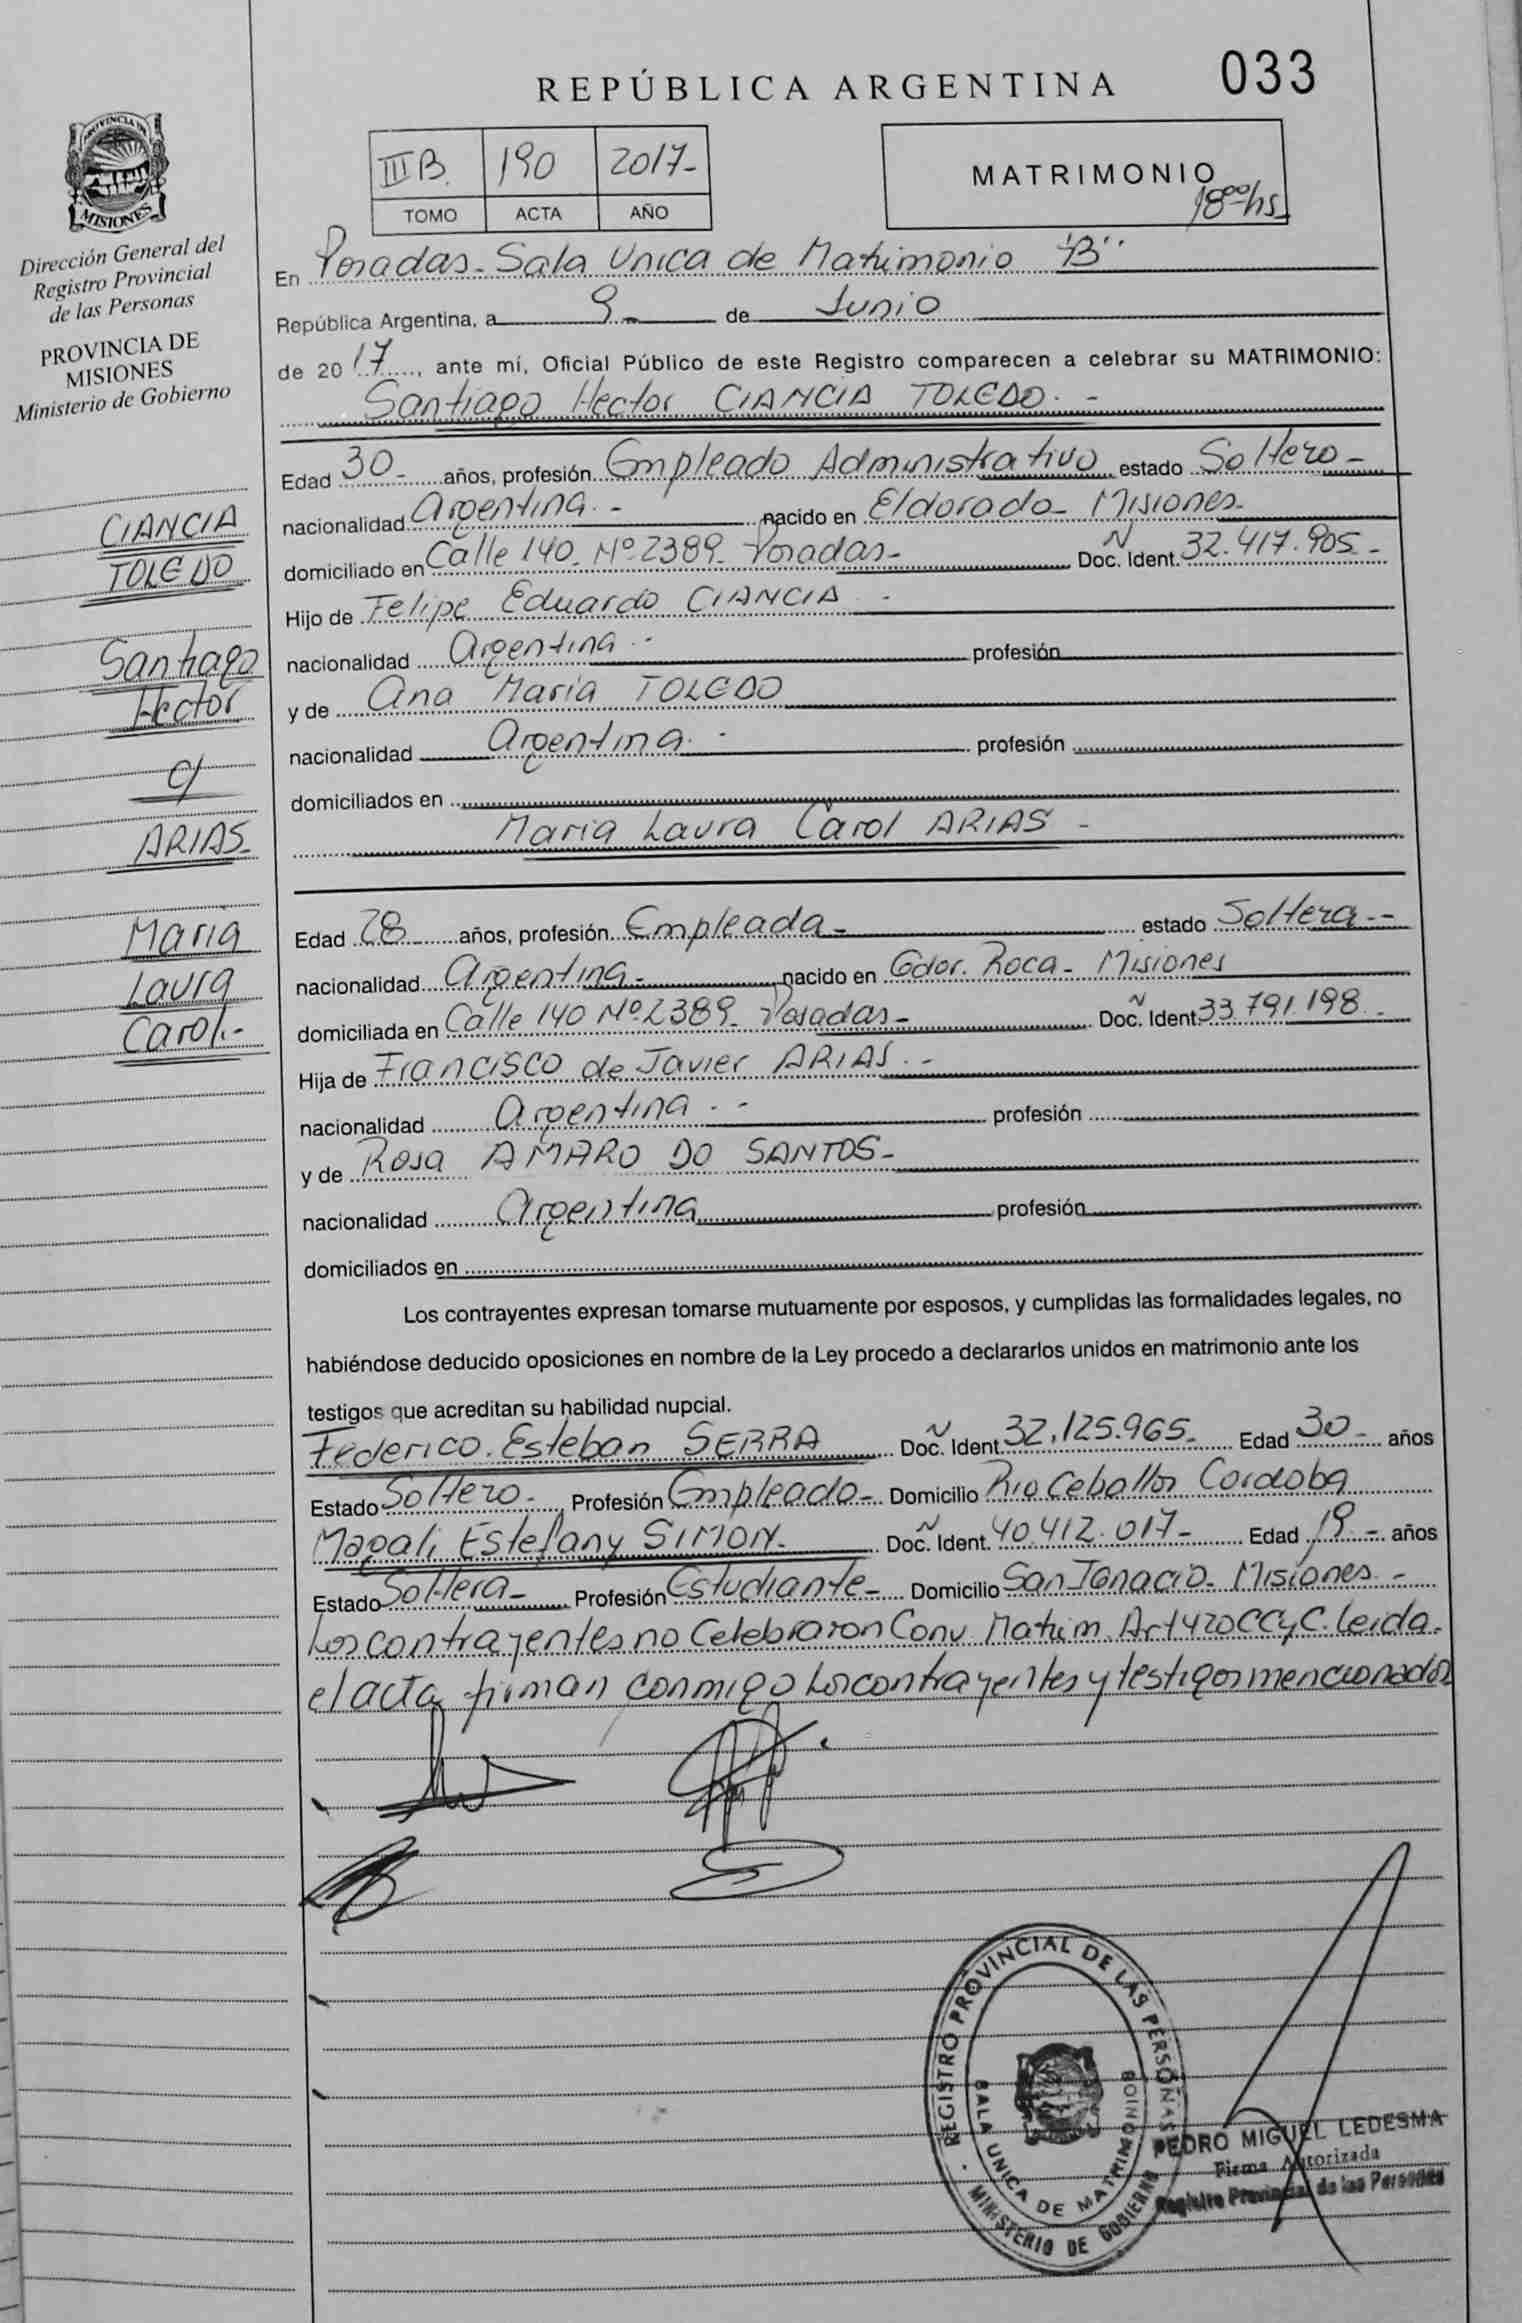 REPÚBLICA ARGENTINA
033
PROVINCIA DE
MISIONES
Dirección General del
Registro Provincial
de las Personas
PROVINCIA DE
MISIONES
Ministerio de Gobierno
III B. 190 2017-
TOMO ACTA AÑO
MATRIMONIO
18°°hs
En Posadas - Sala Unica de Matrimonio "B"
República Argentina, a 9 - de Junio
de 2017, ante mí, Oficial Público de este Registro comparecen a celebrar su MATRIMONIO:
Santiago Hector CIANCIA TOLEDO. -
Edad 30 - años, profesión Empleado Administrativo estado Soltero -
nacionalidad Argentina. - nacido en Eldorado - Misiones -
domiciliado en Calle 140 - Nº 2389 - Posadas - Doc. Ident. N 32.417.905 -
Hijo de Felipe Eduardo CIANCIA -
nacionalidad Argentina. - profesión
y de Ana Maria TOLEDO
nacionalidad Argentina. - profesión
domiciliados en
Maria Laura Carol ARIAS -
Edad 28 años, profesión Empleada - estado Soltera - -
nacionalidad Argentina - nacido en Gdor. Roca - Misiones
domiciliada en Calle 140 Nº 2389 - Posadas - Doc. Ident. N 33.791.198 -
Hija de Francisco de Javier ARIAS. -
nacionalidad Argentina. - profesión
y de Rosa AMARO DO SANTOS -
nacionalidad Argentina profesión
domiciliados en
Los contrayentes expresan tomarse mutuamente por esposos, y cumplidas las formalidades legales, no
habiéndose deducido oposiciones en nombre de la Ley procedo a declararlos unidos en matrimonio ante los
testigos que acreditan su habilidad nupcial.
Federico Esteban SERRA Doc. Ident. N 32.125.965 - Edad 30 - años
Estado Soltero - Profesión Empleado - Domicilio Rio Ceballos Cordoba
Magali Estefany SIMON - Doc. Ident. N 40.412.017 - Edad 19 - años
Estado Soltera - Profesión Estudiante - Domicilio San Ignacio - Misiones -
Los contrayentes no Celebraron Conv. Matrim. Art 420 CCyC. Leida
el acta firman conmigo los contrayentes y testigos mencionados
CIANCIA
TOLEDO
Santiago
Hector
c/
ARIAS -
Maria
Laura
Carol. -
REGISTRO PROVINCIAL DE LAS PERSONAS
SALA UNICA DE MATRIMONIOS
MINISTERIO DE GOBIERNO
PEDRO MIGUEL LEDESMA
Firma Autorizada
Registro Provincial de las Personas